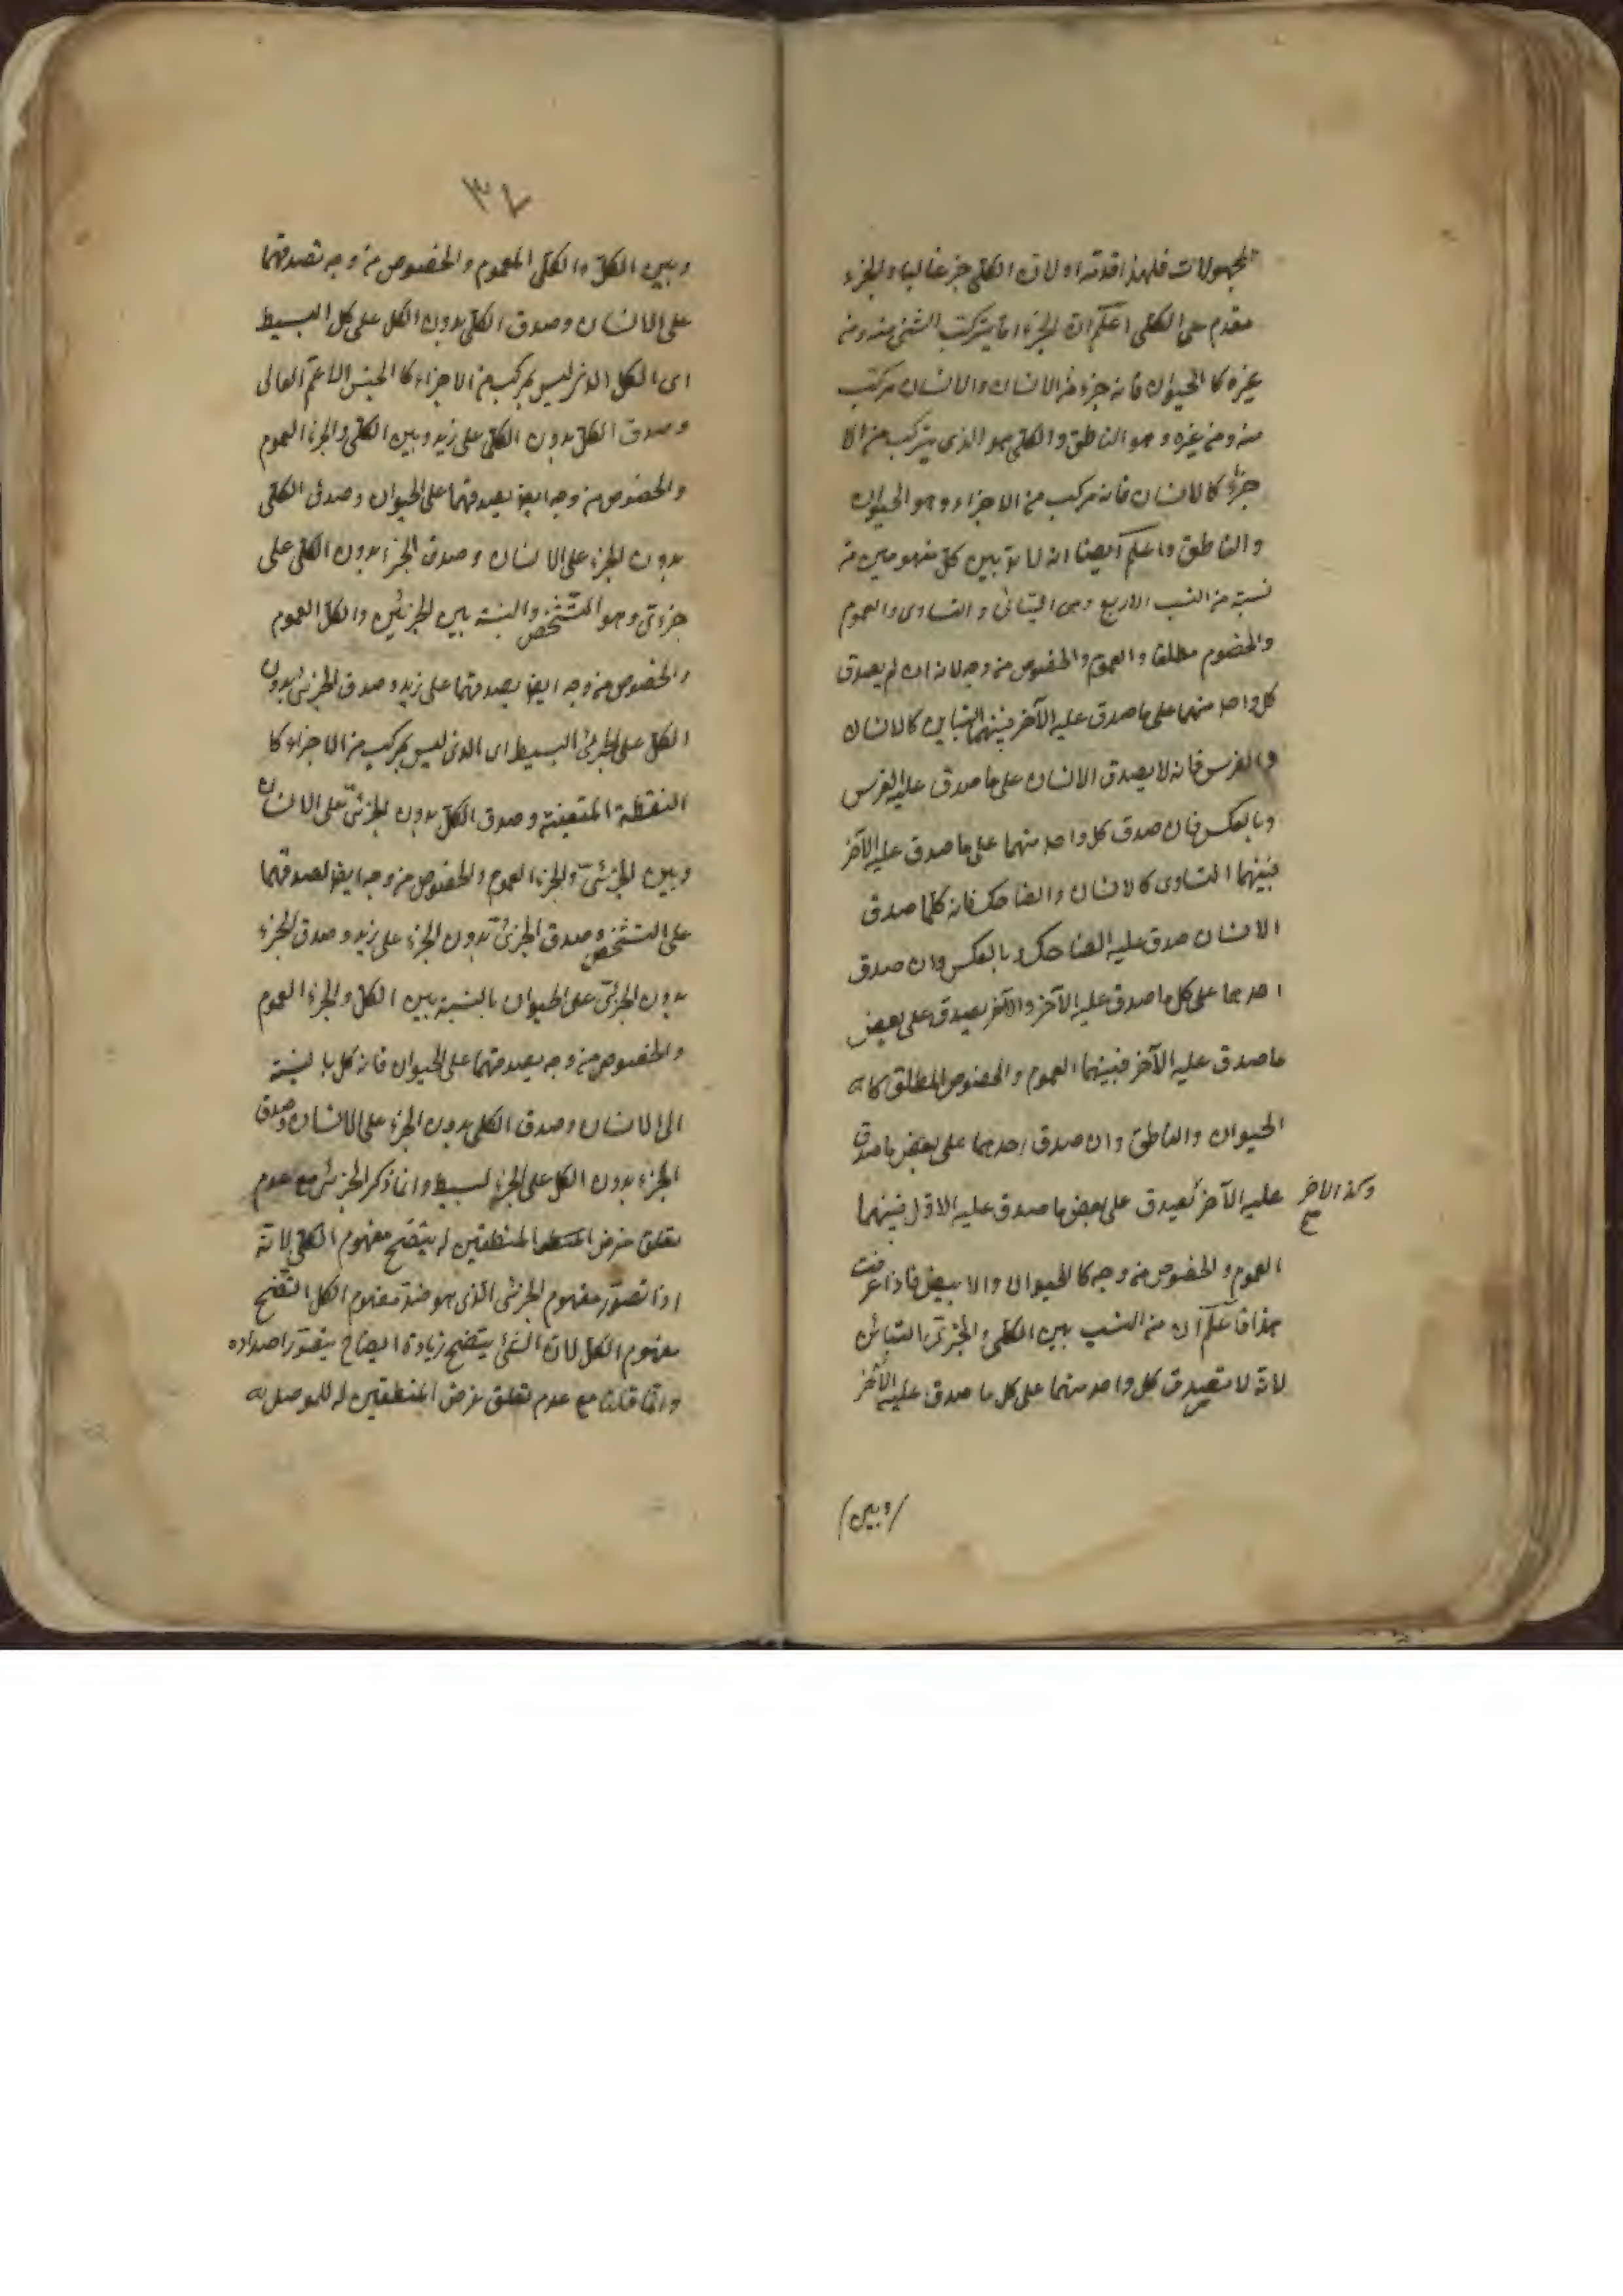 المجهولات فلهذا قدمه اولان الكلى جزء غالبا والجزء
مقدم على الكلى اعلم ان الجزء ما يتركب الشئ منه ومن
غيره كا الحيوان فانه جزء من الانسان والانسان مركب
منه ومن غيره وهو الناطق والكلى هو الذى يتركب من الا
جزاء كالانسان فانه مركب من الاجزاء وهو الحيوان
والناطق واعلم ايضا انه لا بد بين كل مفهومين من
نسبة من النسب الاربع وهى التباين والتساوى والعموم
والخصوم مطلقا والعموم والخصوص من وجه لانه ان لم يصدق
كل واحد منهما على ما صدق عليه الآخر فبينهما التباين كالانسان
والفرس فانه لا يصدق الانسان على ما صدق عليه الفرس
وبالعكس فان صدق كل واحد منهما على ما صدق عليه الآخر
فبينهما التساوى كالانسان والضاحك فانه كلما صدق
الانسان صدق عليه الضاحك وبالعكس وان صدق
احدهما على كل ما صدق عليه الآخر والآخر يصدق على بعض
ما صدق عليه الآخر فبينهما العموم والخصوص المطلق كا
الحيوان والناطق وان صدق احدهما على بعض ما صدق
عليه الآخر يصدق على بعض ما صدق عليه الاول فبينهما
وكذا الاخر صح
العموم والخصوص من وجه كا الحيوان والابيض فاذا عرفت
هذا فاعلم ان من النسب بين الكلى والجزئى التباين
لانه لا يصدق كل واحد منهما على كل ما صدق عليه الآخر
(وبين)
٣٤
وبين الكل والكلى العموم والخصوص من وجه تصدقهما
على الانسان وصدق الكلى بدون الكل على كل البسيط
اى الكل الذى ليس بمركب من الاجزاء كا الجنس العالى
وصدق الكل بدون الكلى على زيد وبين الكلى والجزء العموم
والخصوص من وجه ايضا يصدقهما على الحيوان وصدق الكلى
بدون الجزء على الانسان وصدق الجزء بدون الكلى على
جزءى وهو التشخص والنسبة بين الجزئى والكل العموم
والخصوص من وجه ايضا يصدقهما على زيد وصدق الجزئى بدون
الكل على الجزئى البسيط اى الذى ليس بمركب من الاجزاء كا
النقطة المتعينة وصدق الكل بدون الجزئى على الانسان
وبين الجزئى والجزء العموم والخصوص من وجه ايضا لصدقهما
على التشخص وصدق الجزئى بدون الجزء على زيد وصدق الجزء
بدون الجزئى على الحيوان بالنسبة بين الكل والجزء العموم
والخصوص من وجه يصدقهما على الحيوان فانه كل بالنسبة
الى الانسان وصدق الكلى بدون الجزء على الانسان وصدق
الجزء بدون الكل على الجزء لبسيط وانما ذكر الجزئى مع عدم
تعلق غرض المنطقيين له ليتضح مفهوم الكلى لانه
اذا تصور مفهوم الجزئى الذى هو ضد مفهوم الكل اتضح
مفهوم الكل لان الشئ يتضح زيادة ايضاح بتصور اضداده
وانما قلنا مع عدم تعلق غرض المنطقيين له للموصل به